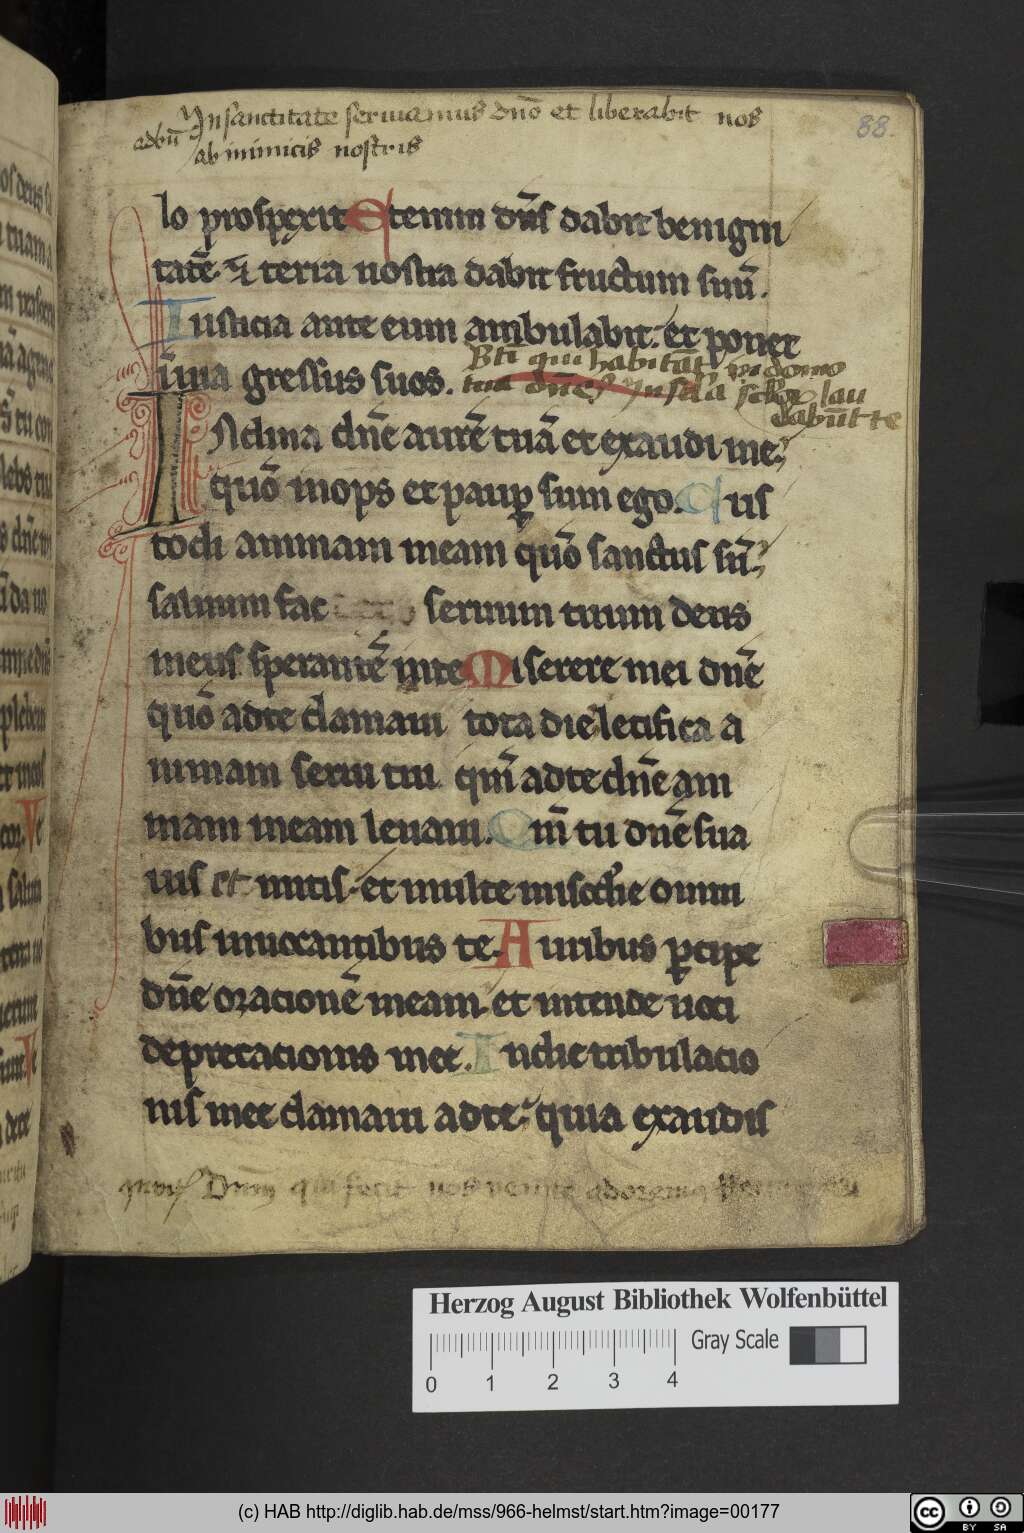 Jn sanctitate seruiamus dnō et liberabit nos
ab inimicis nostris
88.
lo prospexit Etenim dn̄s dabit benigni
tatē ⁊ terra nostra dabit fructum suū.
Iusticia ante eum ambulabit: et ponet
in uia gressus suos. Bti qui habitāt in domo
tua dn̄e Jn sc̄la sclor lau
dabūt te
INclina dn̄e aurē tuā et exaudi me
quō inops et paup sum ego. Cus
todi animam meam quō sanctus sū
saluum fac seruum tuum deus
meus sperantē in te Miserere mei dn̄e
quō ad te clamaui tota die letifica a
nimam serui tui qm̄ ad te dn̄e ani
mam meam leuaui. Qm̄ tu dn̄e sua
uis et mitis. et multe mis̄cdie omni
bus inuocantibus te. Auribus pcipe
dn̄e orationē meam. et intende uoci
deprecationis mee. In die tribulatio
nis mee clamaui ad te. quia exaudis
Dnm qui fecit nos venite adoremus
Herzog August Bibliothek Wolfenbüttel
Gray Scale
0 1 2 3 4
(c) HAB http://diglib.hab.de/mss/966-helmst/start.htm?image=00177
cc BY SA